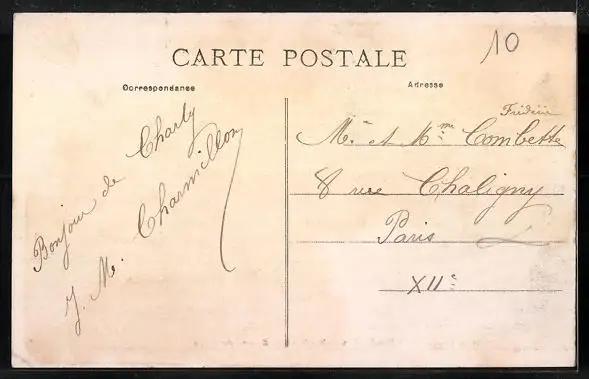 CARTE POSTALE
10
Correspondance
Adresse
Bonjour de Charly
J. M. Charmillon
Frédéric
Mr et Mme Combette
8 rue Chaligny
Paris
XIIe